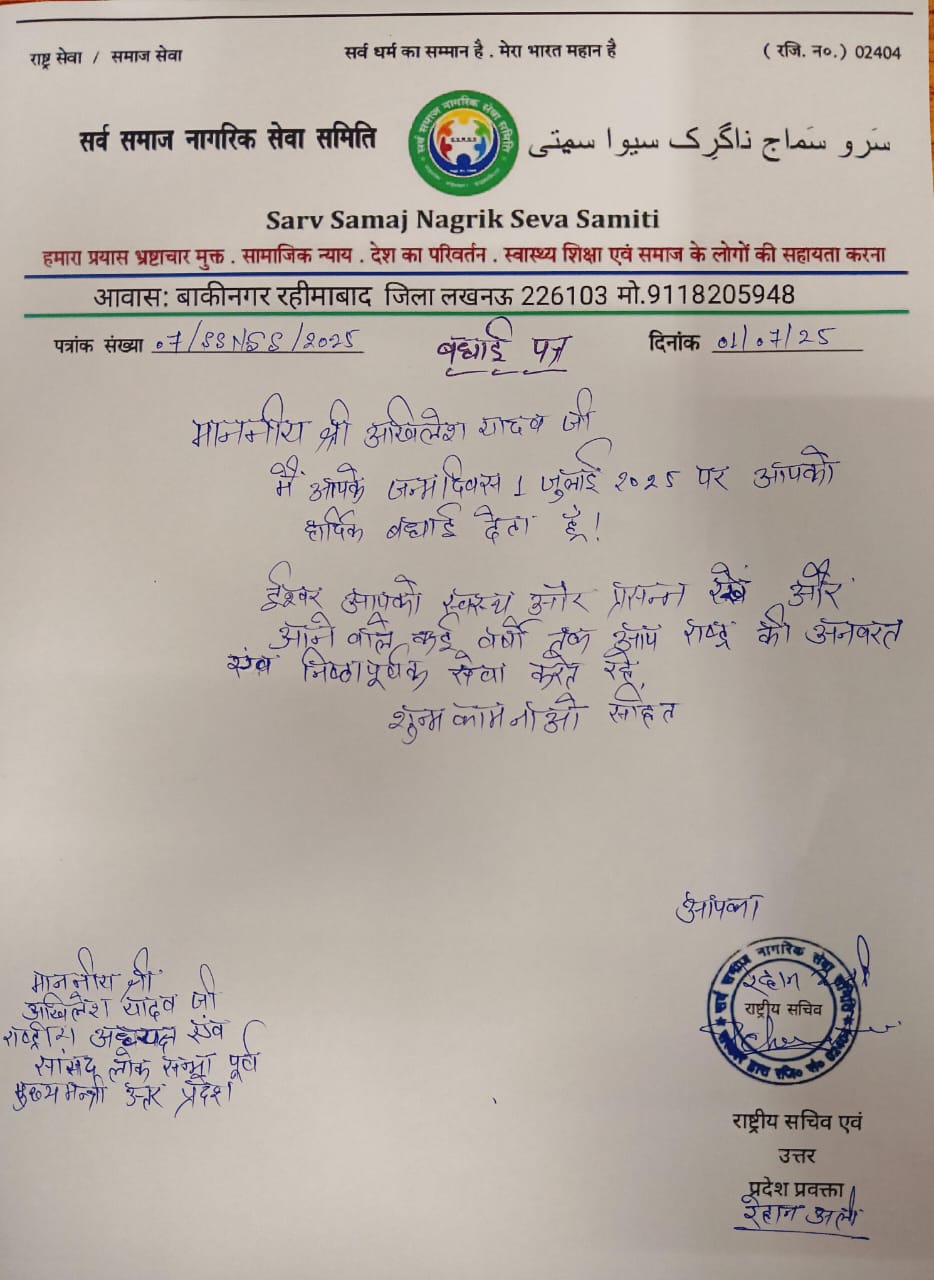 राष्ट्र सेवा / समाज सेवा सर्व धर्म का सम्मान है . मेरा भारत महान है ( रजि. न०.) 02404
सर्व समाज नागरिक सेवा समिति سَرو سَماج ناگرِک سیوا سمیتی
सर्व समाज नागरिक सेवा समिति
S.S.N.S.S
Sarv Samaj Nagrik Seva Samiti
हमारा प्रयास भ्रष्टाचार मुक्त . सामाजिक न्याय . देश का परिवर्तन . स्वास्थ्य शिक्षा एवं समाज के लोगों की सहायता करना
आवास: बाकीनगर रहीमाबाद जिला लखनऊ 226103 मो.9118205948
पत्रांक संख्या 07/SSNSS/2025 बधाई पत्र दिनांक 01/07/25
माननीय श्री अखिलेश यादव जी
मैं आपके जन्मदिवस 1 जुलाई 2025 पर आपको
हार्दिक बधाई देता हूँ!
ईश्वर आपको स्वस्थ और प्रसन्न रखें और
आने वाले कई वर्षो तक आप राष्ट्र की अनवरत
एंव निष्ठापूर्वक सेवा करते रहें,
शुभकामनाओ सहित
आपका
माननीय श्री
अखिलेश यादव जी
राष्ट्रीय अध्यक्ष एंव
सांसद लोक सभा पूर्व
मुख्यमन्त्री उत्तर प्रदेश
सर्व समाज नागरिक सेवा समिति
राष्ट्रीय सचिव
राष्ट्रीय सचिव एवं
उत्तर
प्रदेश प्रवक्ता
रेहान अली